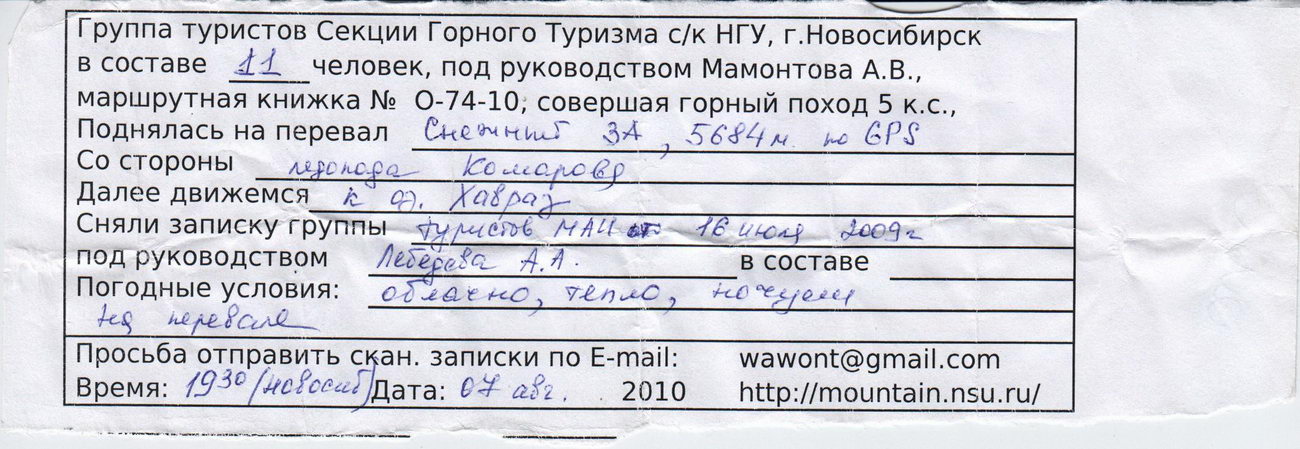 Группа туристов Секции Горного Туризма с/к НГУ, г.Новосибирск
в составе 11 человек, под руководством Мамонтова А.В.,
маршрутная книжка № О-74-10, совершая горный поход 5 к.с.,
Поднялась на перевал Снежный 3А, 5684м по GPS
Со стороны ледопада Комарова
Далее движемся к л. Хавраз
Сняли записку группы туристов МАИ от 16 июля 2009г
под руководством Лебедева А.А. в составе
Погодные условия: облачно, тепло, ночуем
на перевале
Просьба отправить скан. записки по E-mail: wawont@gmail.com
Время: 19³⁰ (новосиб) Дата: 07 авг. 2010 http://mountain.nsu.ru/